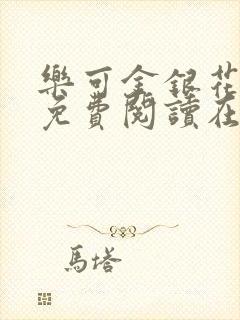 樂可金銀花
免費閱讀在
馬塔